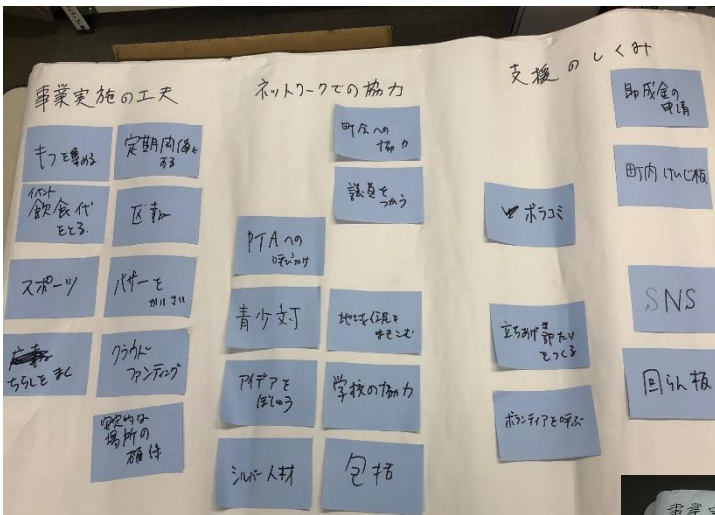 事業実施の工夫
キフを集める
定期開催を
する
イベント
飲食代
をとる
区報
スポーツ
バザーを
かいさい
ちらしをまく
クラウド
ファンディング
安定的な
場所の
確保
ネットワークでの協力
町会への
協力
議員を
つかう
PTAへの
呼びかけ
青少対
地域住民を
まきこむ
アイデアを
ぼしゅう
学校の協力
シルバー人材
包括
支援のしくみ
助成金の
申請
町内けいじ板
ボラコミ
SNS
立ちあげ
をつくる
回らん板
ボランティアを呼ぶ
事業実